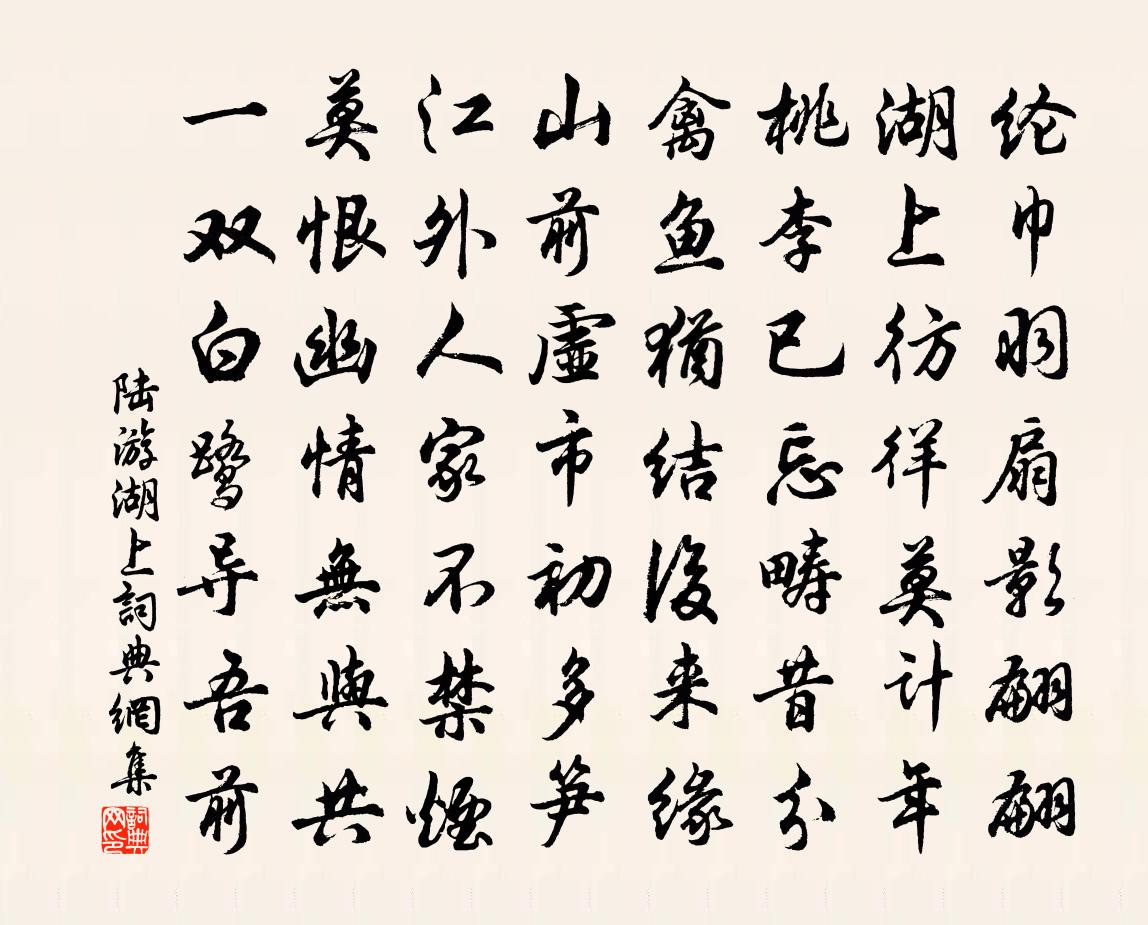 纶巾羽扇影翩翩
湖上彷徉莫计年
桃李已忘畴昔分
禽鱼犹结后来缘
山前虚市初多笋
江外人家不禁烟
莫恨幽情無與共
一双白鹭导吾前
陆游湖上詞典網集
詞典网印